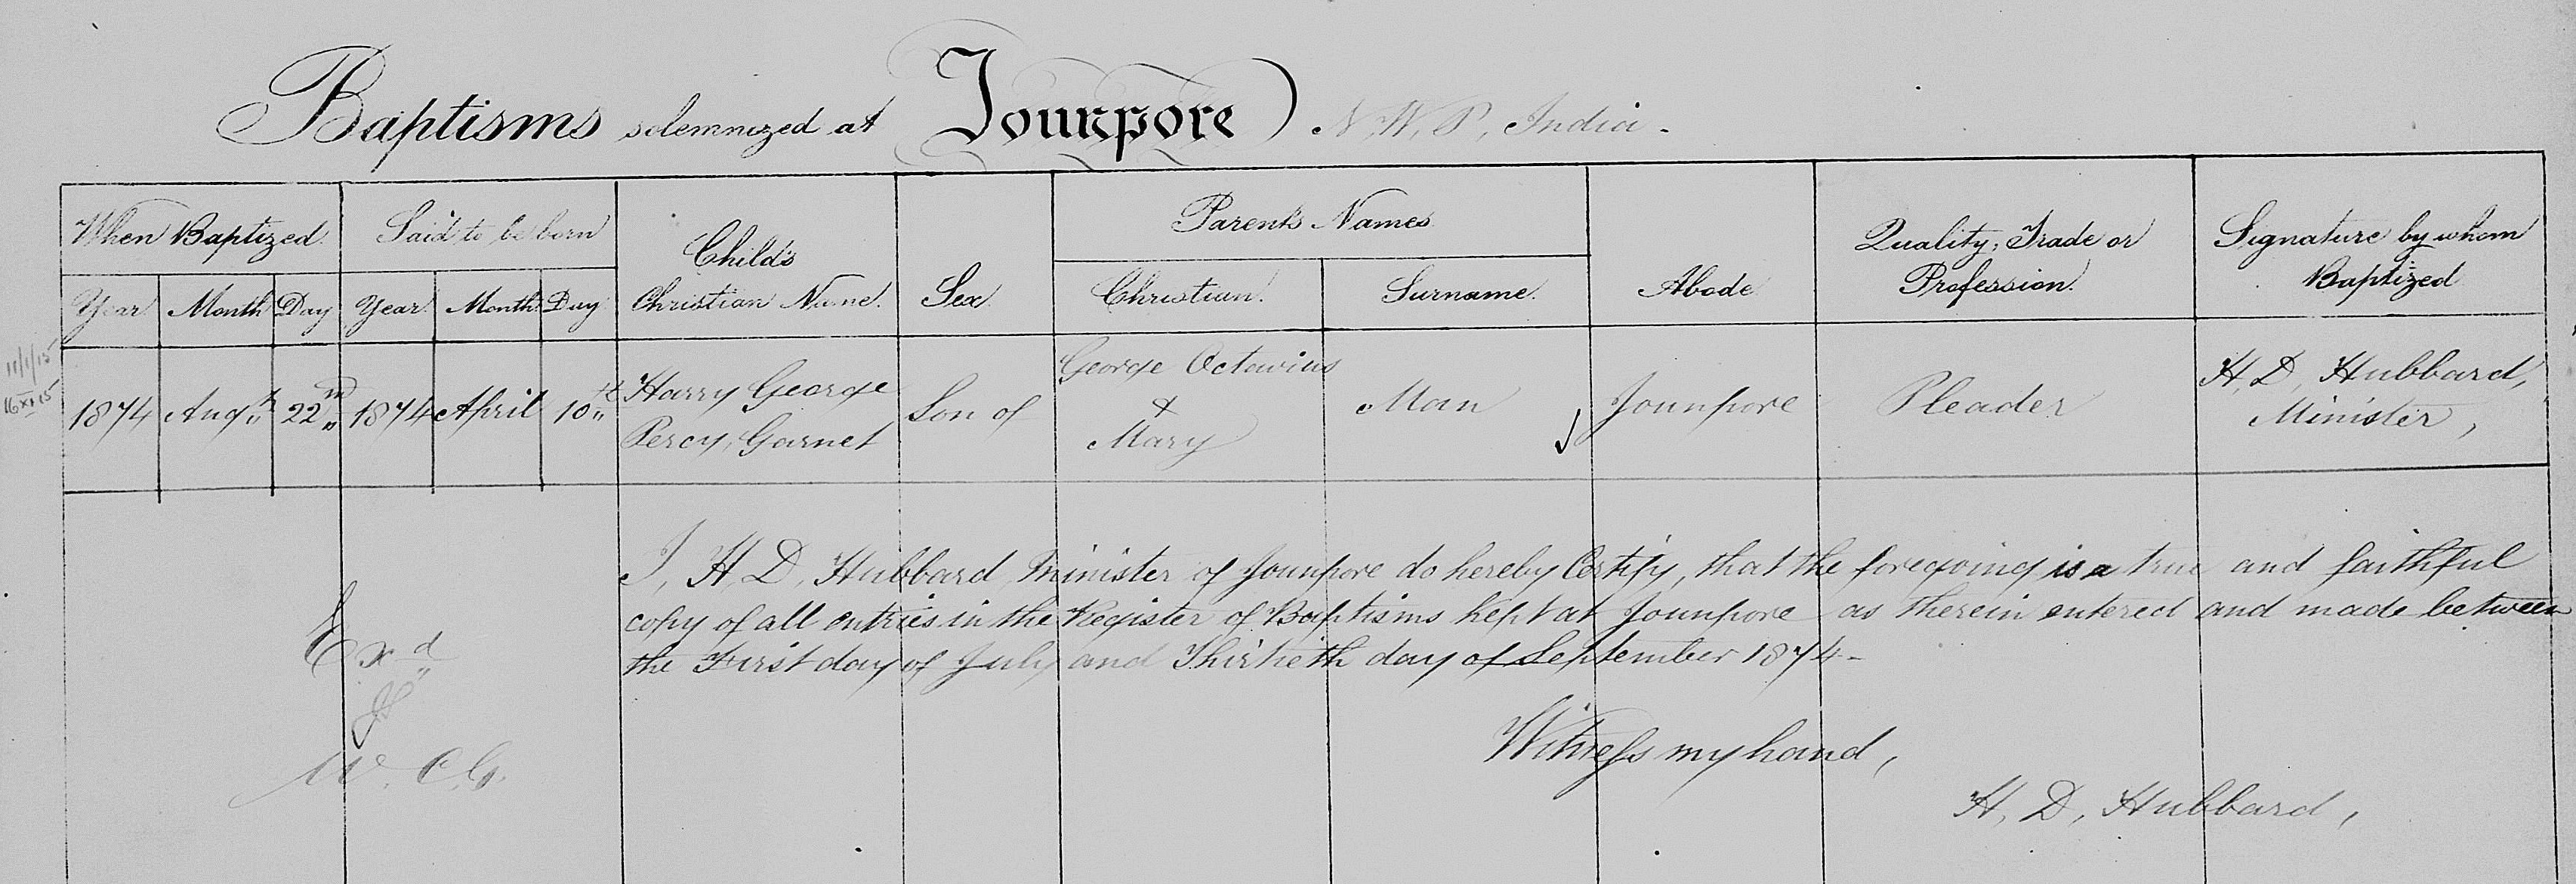 Baptisms solemnized at Jounpore N. W. P. India.
When Baptized. Said to be born Child's Christian Name. Sex. Parents Names Abode Quality, Trade or Profession. Signature by whom Baptized
Year Month Day Year Month Day Christian. Surname.
11/1/15
16 XI 15
1874 Augt 22nd 1874 April 10th Harry George Percy, Garnet Son of George Octavius & Mary Man Jounpore Pleader H, D, Hubbard, Minister,
I, H, D, Hubbard, Minister of Jounpore do hereby Certify, that the foregoing is a true and faithful
copy of all entries in the Register of Baptisms kept at Jounpore as therein entered and made between
the First day of July and Thirtieth day of September 1874-
Exd
W. C. G.
Witness my hand,
H, D, Hubbard,